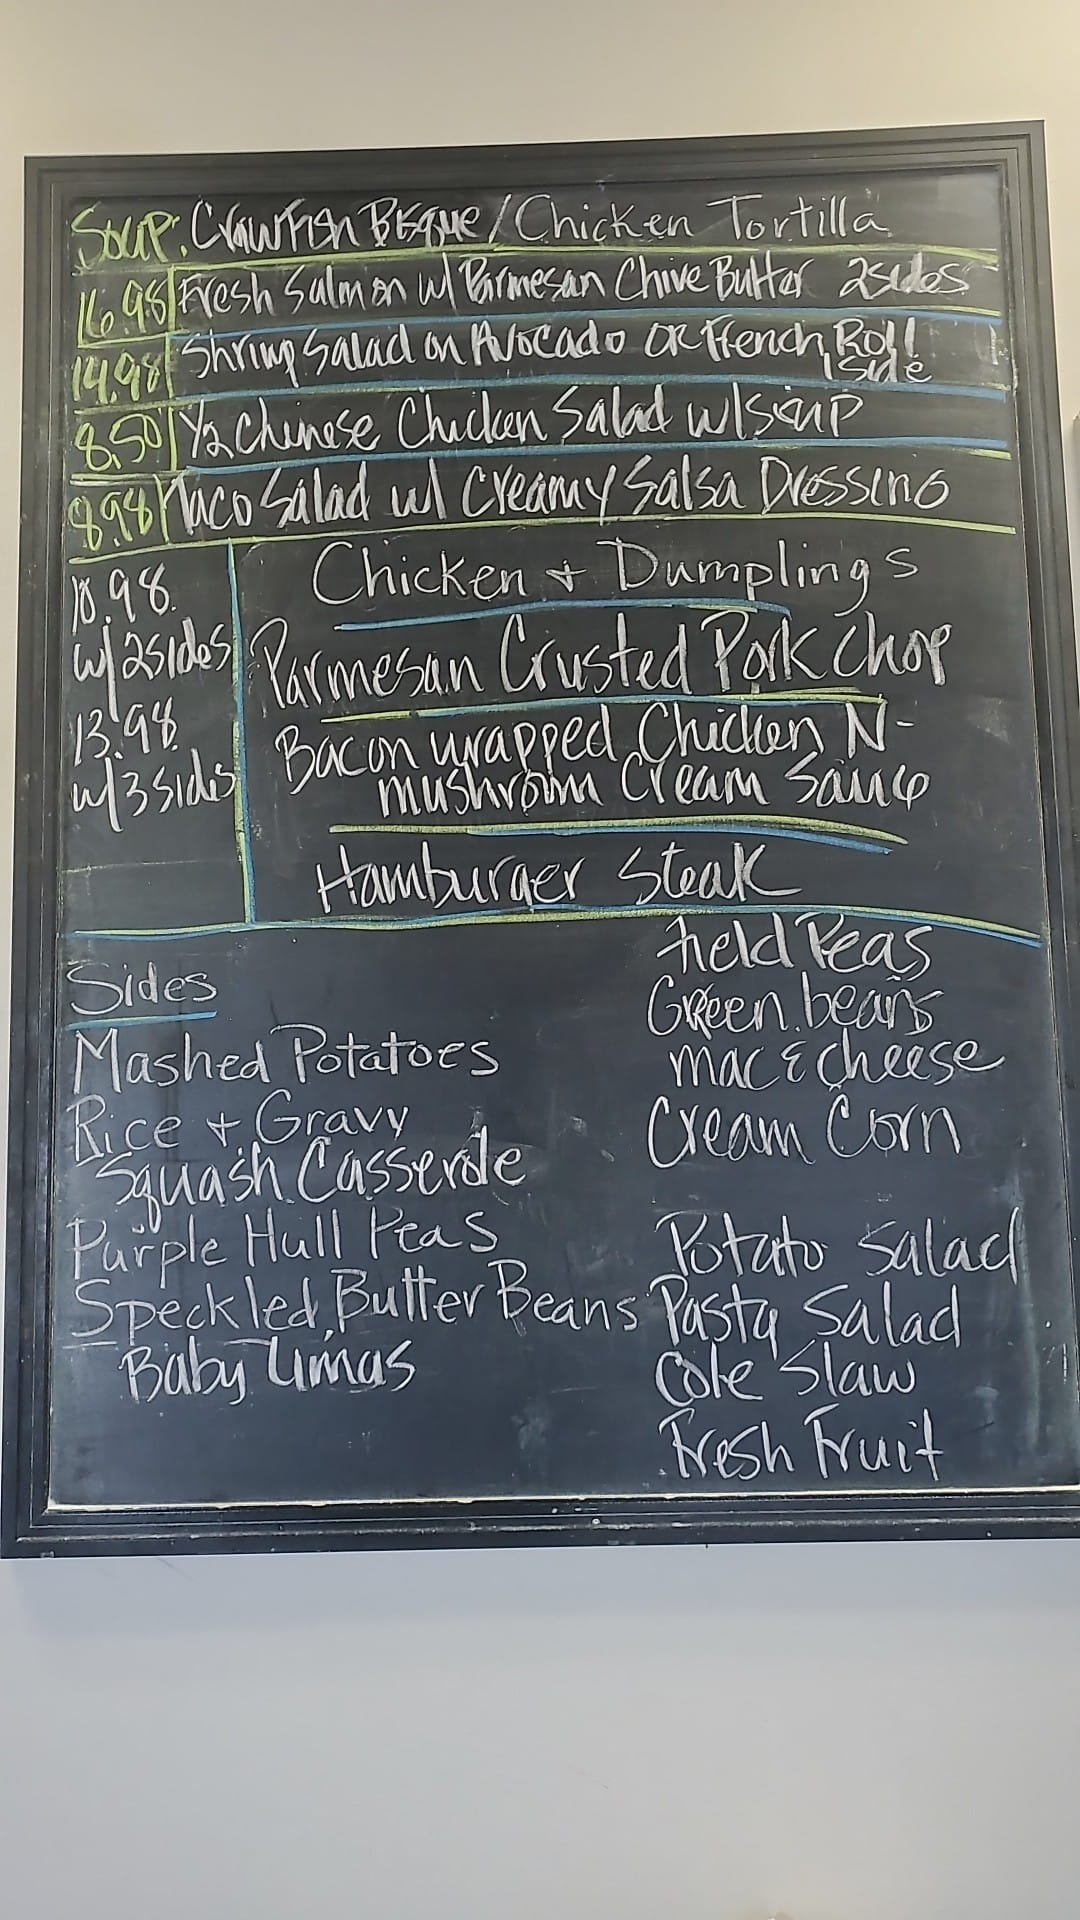 Soup: Crawfish Bisque / Chicken Tortilla
16.98 Fresh Salmon w/ Parmesan Chive Butter 2 sides
14.98 Shrimp Salad on Avocado or French Roll
1 side
8.50 1/2 Chinese Chicken Salad w/ soup
8.98 Taco Salad w/ Creamy Salsa Dressing
10.98
w/ 2 sides
13.98
w/ 3 sides
Chicken + Dumplings
Parmesan Crusted Pork Chop
Bacon wrapped Chicken N-
mushroom Cream Sauce
Hamburger Steak
Sides
Mashed Potatoes
Rice + Gravy
Squash Casserole
Purple Hull Peas
Speckled Butter Beans
Baby Limas
Field Peas
Green beans
mac & cheese
Cream Corn
Potato Salad
Pasta Salad
Cole Slaw
Fresh Fruit